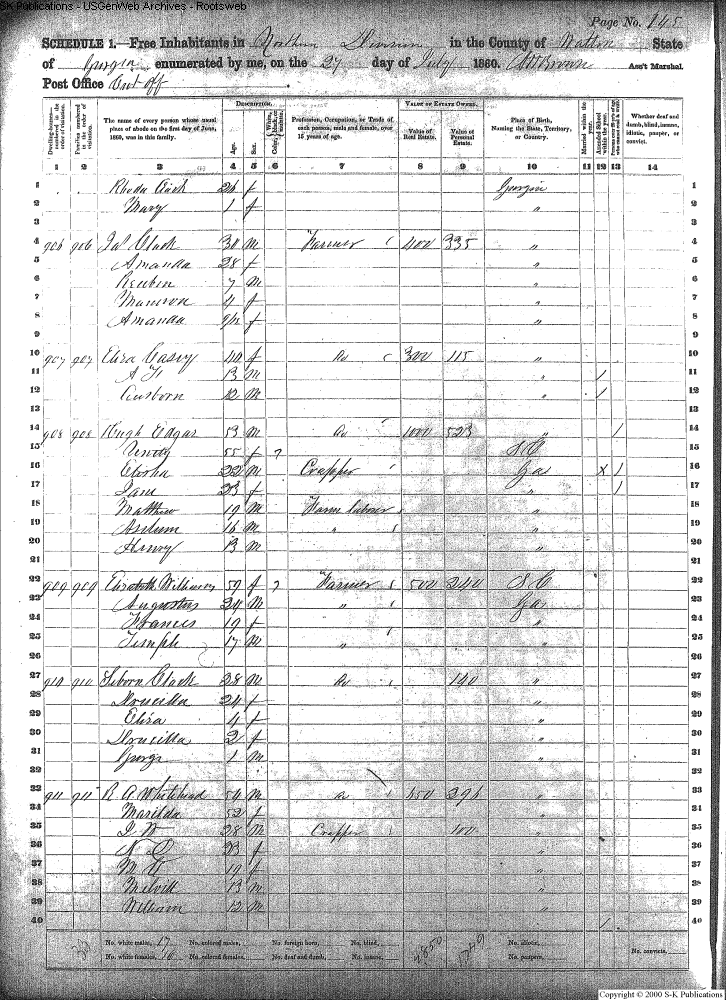 S-K Publications - USGenWeb Archives - Rootsweb
Page No. 145
SCHEDULE 1.—Free Inhabitants in Northern Division in the County of Walton State
of Georgia enumerated by me, on the 27 day of July 1860. Ass't Marshal.
Post Office Cut off
Dwelling-houses—numbered in the order of visitation.
Families numbered in the order of visitation.
The name of every person whose usual place of abode on the first day of June, 1860, was in this family.
DESCRIPTION.
Age.
Sex.
Color, White, black, or mulatto.
Profession, Occupation, or Trade of each person, male and female, over 15 years of age.
VALUE OF ESTATE OWNED.
Value of Real Estate.
Value of Personal Estate.
Place of Birth, Naming the State, Territory, or Country.
Married within the year.
Attended School within the year.
Whether deaf and dumb, blind, insane, idiotic, pauper, or convict.
1 2 3 4 5 6 7 8 9 10 11 12 13 14
1 Rhoda 26 f Georgia 1
2 Mary 1 f " 2
3 3
4 906 906 Jas Clack 30 m Farmer 400 335 " 4
5 Amanda 28 f " 5
6 Reuben 7 m " 6
7 4 f " 7
8 Amanda 9/12 f " 8
9 9
10 907 907 Eliza Casey 40 f Do 300 115 " 10
11 13 m " 1 11
12 12 m 1 12
13 13
14 908 908 Hugh Edgar 53 m Do 1000 523 " / 14
15 55 f S C 15
16 Elisha 22 m Cropper Ga X / 16
17 Jane 23 f " / 17
18 Matthew 19 m Farm labour " 18
19 16 m " " 19
20 Henry 13 m " 20
21 21
22 909 909 Elizabeth Williams 59 f Farmer 500 240 S C 22
23 Augustus 24 m " Ga 23
24 Francis 19 f " 24
25 17 m " " 25
26 26
27 910 910 Seborn Clack 28 m Do 140 " 27
28 Drucilla 24 f " 28
29 Eliza 4 f " 29
30 Drucilla 2 f " 30
31 George 1 m " 31
32 32
33 911 911 R. A Whitehead 54 m Do 450 396 " 33
34 Marilda 52 f " 34
35 J. W 28 m Cropper 100 " 35
36 23 f " 36
37 19 f " 37
38 13 m " 38
39 William 12 m " 39
40 1 40
No. white males, 17 No. colored males, No. foreign born, No. blind, No. idiotic,
No. white females, 16 No. colored females, No. deaf and dumb, No. insane, No. paupers, No. convicts,
Copyright © 2000 S-K Publications